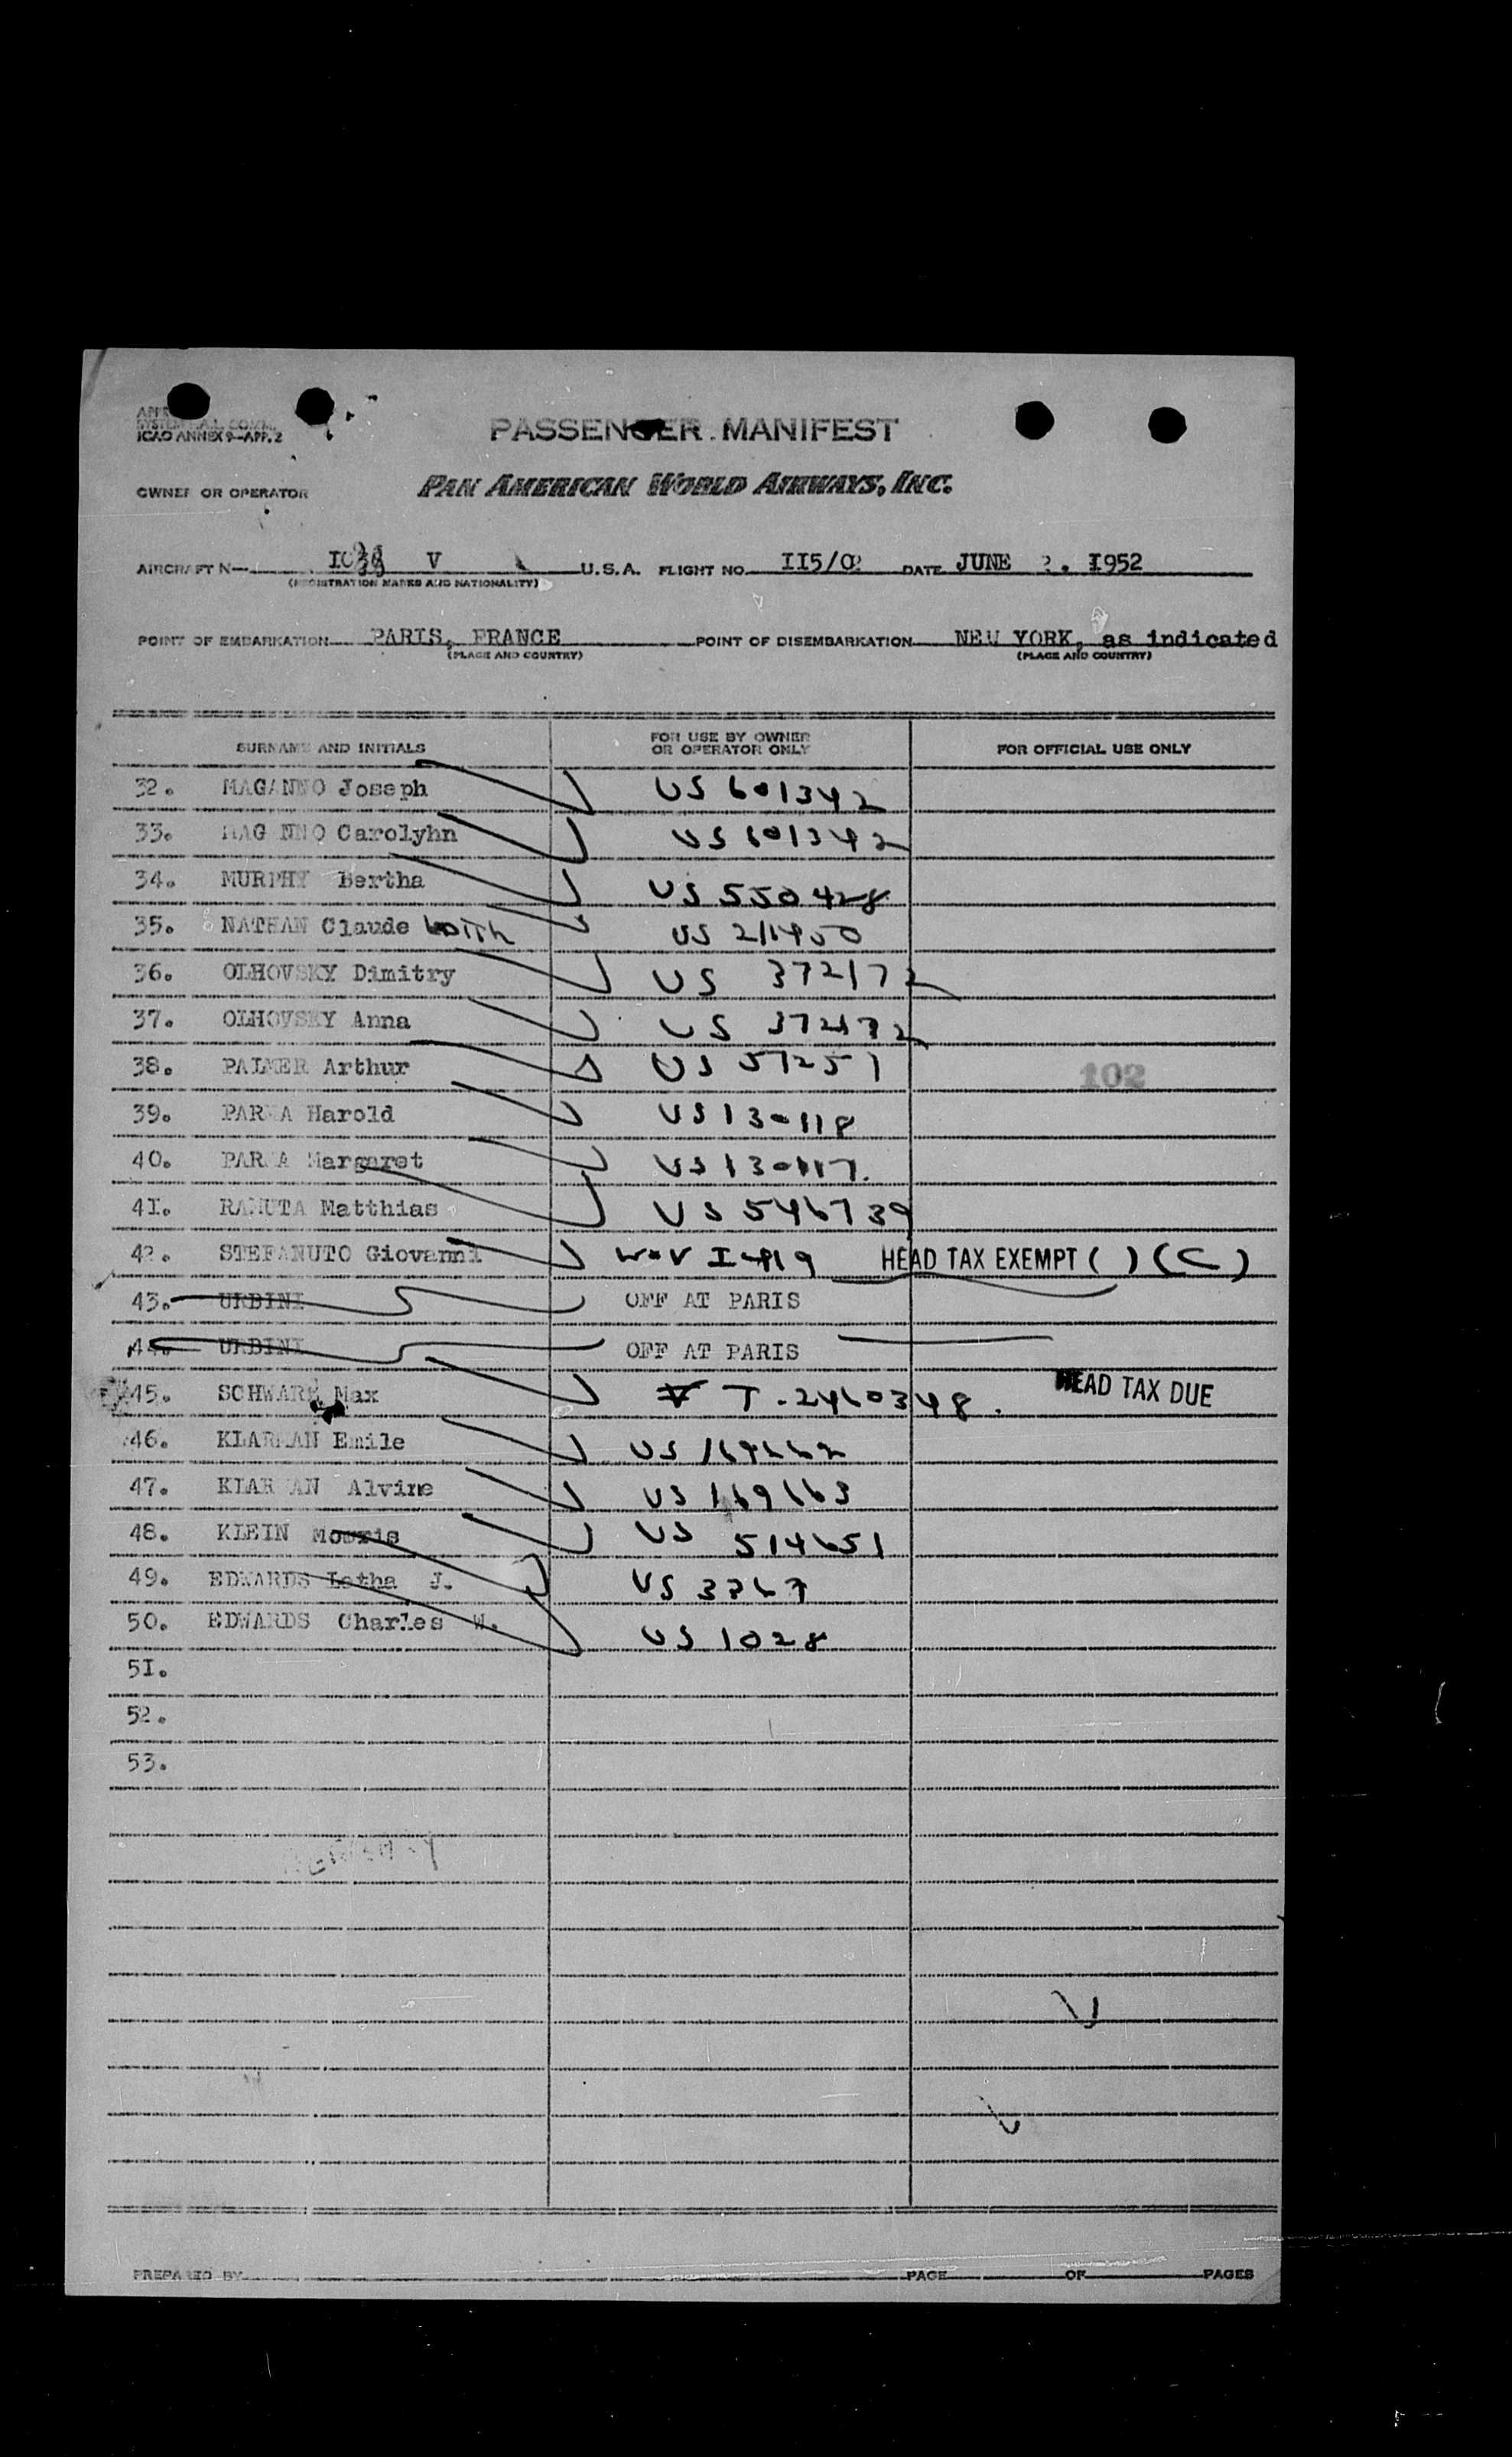 ICAO ANNEX 9—APP. 2
PASSENGER MANIFEST
OWNER OR OPERATOR PAN AMERICAN WORLD AIRWAYS, INC.
AIRCRAFT N— V U.S.A. FLIGHT NO. II5/ DATE JUNE . I952
(REGISTRATION MARKS AND NATIONALITY)
POINT OF EMBARKATION PARIS, FRANCE POINT OF DISEMBARKATION NEW YORK, as indicated
(PLACE AND COUNTRY) (PLACE AND COUNTRY)
SURNAME AND INITIALS FOR USE BY OWNER OR OPERATOR ONLY FOR OFFICIAL USE ONLY
32. MAGANNO Joseph US 601342
33. MAGANNO Carolyhn US 601342
34. MURPHY Bertha US 550428
35. NATHAN Claude US
36. OLHOVSKY Dimitry US 372172
37. OLHOVSKY Anna US 372172
38. PALMER Arthur US 51251
102
39. Harold US 130118
40. Margaret US 130117.
4I. RAMUTA Matthias US 546739
42. STEFANUTO Giovanni HEAD TAX EXEMPT ( ) (C)
43. URBINI OFF AT PARIS
44. URBINI OFF AT PARIS
45. Max T-2460348. HEAD TAX DUE
46. Emile US 169662
47. Alvine US 169663
48. KLEIN Morris US 514651
49. EDWARDS Letha J. US 3767
50. EDWARDS Charles W. US 1028
5I.
52.
53.
PREPARED BY PAGE OF PAGES